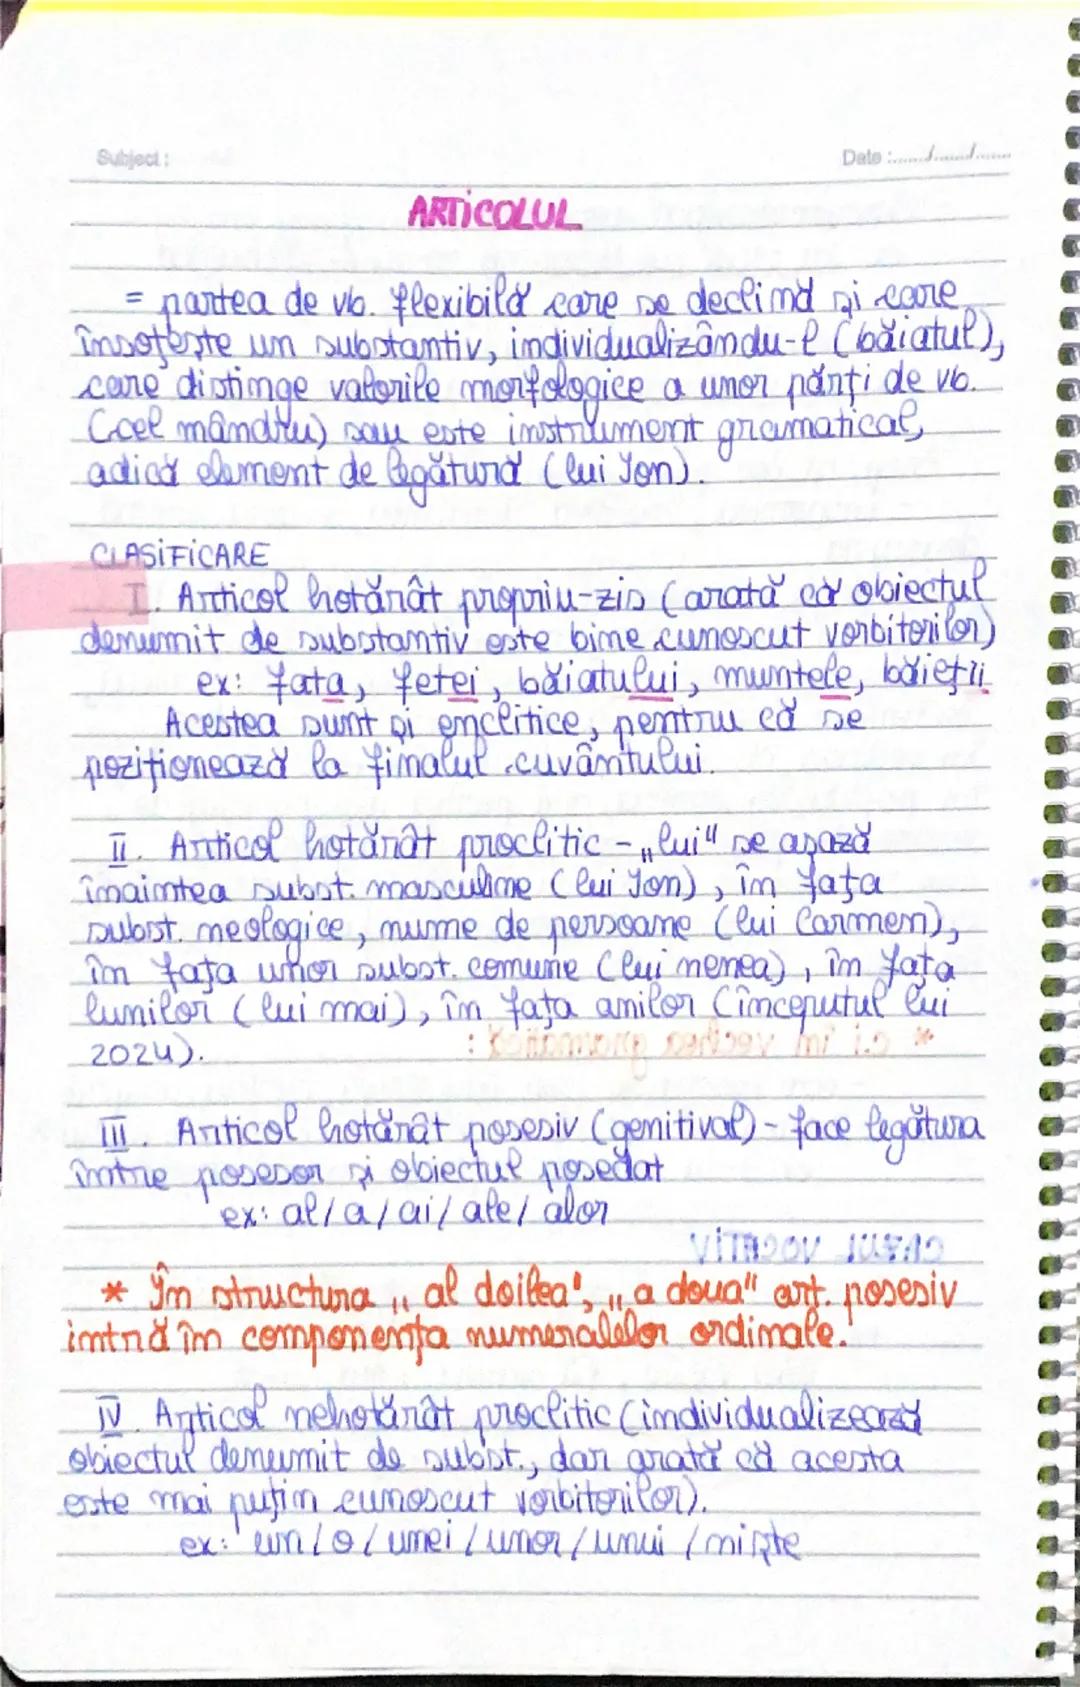 Subject :
Date :....../....../......
ARTICOLUL
= partea de vb. flexibilă care se declină și care
însoțește un substantiv, individualizându-l (băiatul),
care distinge valorile morfologice a unor părți de vb.
(cel mândru) sau este instrument gramatical,
adică element de legătură (lui Ion).
CLASIFICARE
I. Articol hotărât propriu-zis (arată că obiectul
denumit de substantiv este bine cunoscut vorbitorilor)
ex: fata, fetei, băiatului, muntele, băieții
Acestea sunt și enclitice, pentru că se
poziționează la finalul cuvântului.
II. Articol hotărât proclitic - „lui" se așază
înaintea subst. masculine (lui Ion), în fața
subst. neologice, nume de persoane (lui Carmen),
în fața unor subst. comune (lui nenea), în fața
lunilor (lui mai), în fața anilor (începutul lui
2024).
III. Articol hotărât posesiv (genitival) - face legătura
între posesor și obiectul posedat
ex: al/a/ai/ale/alor
* În structura „al doilea", „a doua" art. posesiv
intră în componența numeralelor ordinale.
IV. Articol nehotărât proclitic (individualizează
obiectul denumit de subst., dar arată că acesta
este mai puțin cunoscut vorbitorilor).
ex: un/o/unei/unor/unui/niște